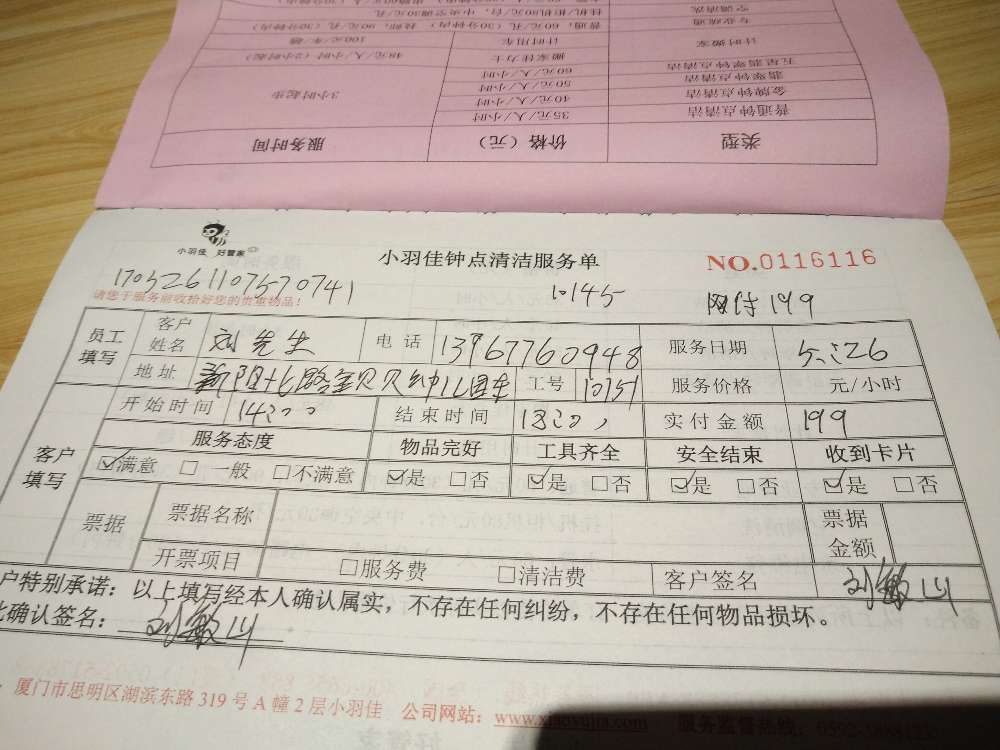 类型 价格（元） 服务时间
普通钟点清洁 35元/人/小时 3小时起步
金牌钟点清洁 40元/人/小时
翡翠钟点清洁 50元/人/小时
五星翡翠钟点清洁 60元/人/小时
计时搬家 搬家佳力士 48元/人/小时（2小时起）
计时用车 100元/车/趟
专业疏通 普通，60元/孔（30分钟内）
空调清洗
小羽佳 好管家
小羽佳钟点清洁服务单
NO.0116116
1705261107570741
10145
网付199
请您于服务前收拾好您的贵重物品！
员工填写 客户姓名 刘先生 电话 13767760948 服务日期 5.26
地址 新阳 路 贝贝幼儿园 工号 10151 服务价格 元/小时
客户填写 开始时间 14:00 结束时间 18:00 实付金额 199
服务态度 物品完好 工具齐全 安全结束 收到卡片
☑满意 □一般 □不满意 ☑是 □否 ☑是 □否 ☑是 □否 ☑是 □否
票据 票据名称 票据金额
开票项目 □服务费 □清洁费 客户签名 刘敏山
户特别承诺：以上填写经本人确认属实，不存在任何纠纷，不存在任何物品损坏。
此确认签名： 刘敏山
厦门市思明区湖滨东路319号A幢2层小羽佳 公司网站：www.xiaoyujia.com 服务监督热线：0592-